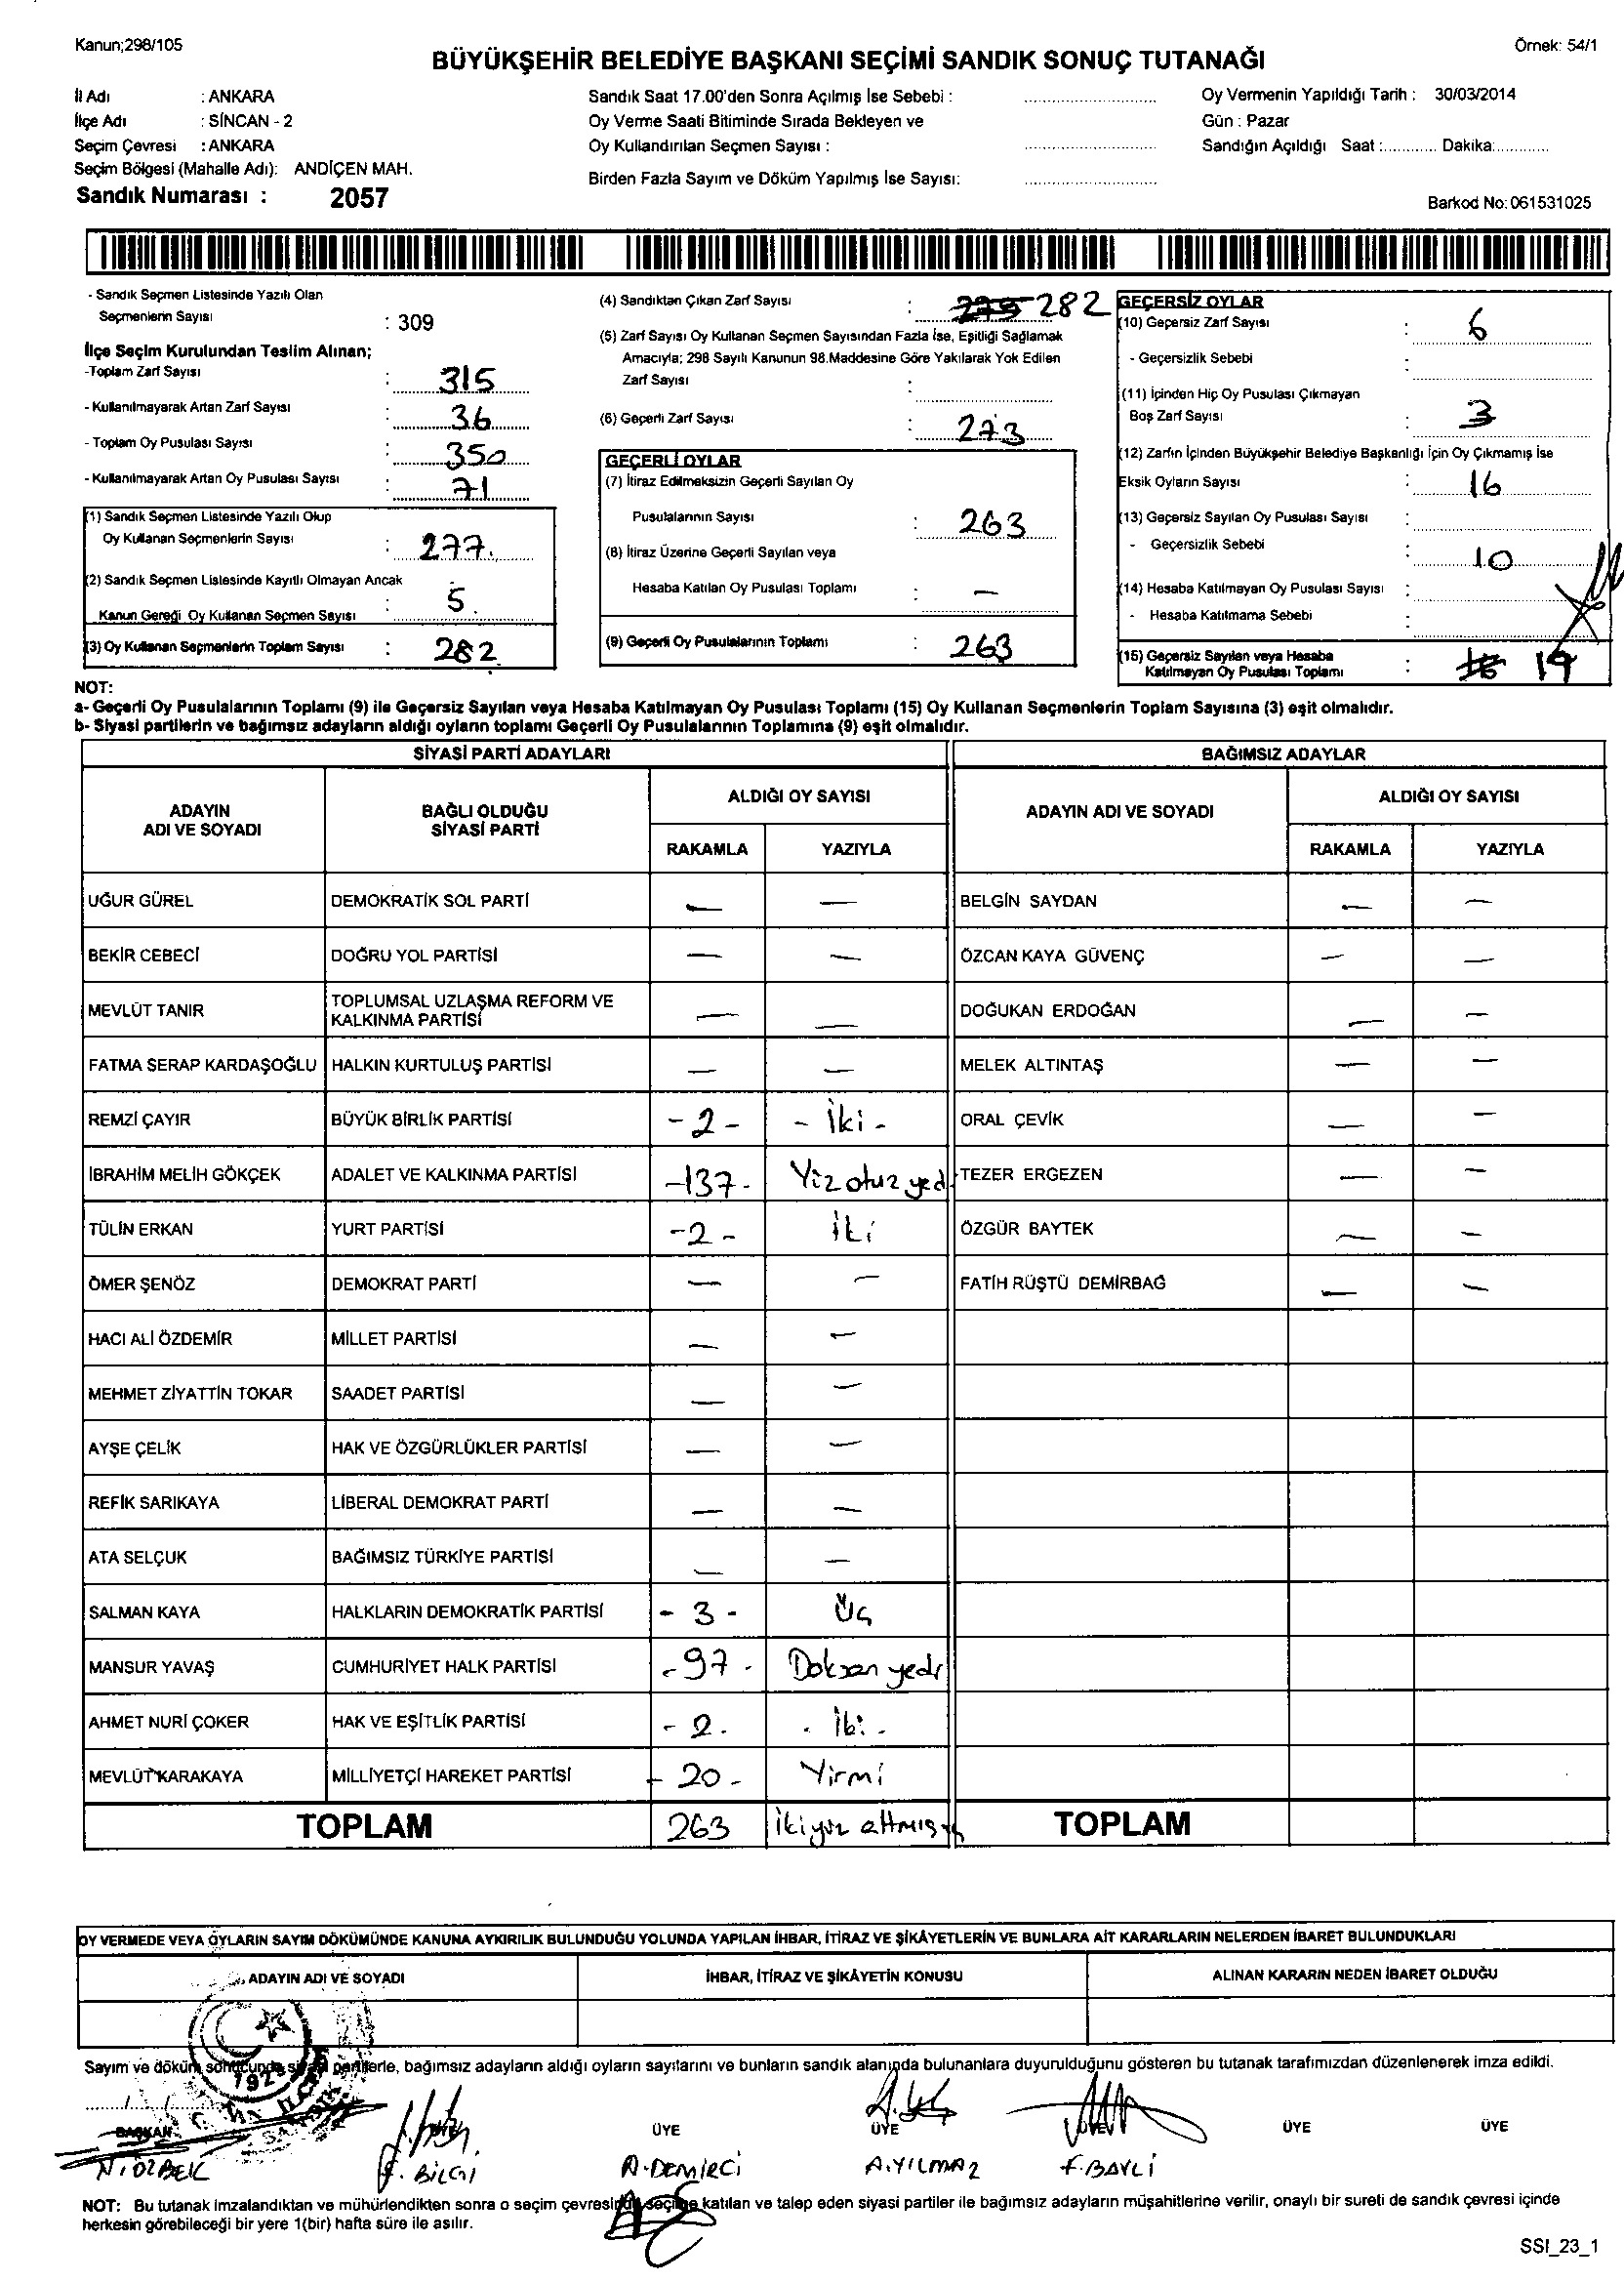 Kanun;298/105
Örnek: 54/1
BÜYÜKŞEHİR BELEDİYE BAŞKANI SEÇİMİ SANDIK SONUÇ TUTANAĞI
İl Adı : ANKARA
İlçe Adı : SİNCAN - 2
Seçim Çevresi : ANKARA
Seçim Bölgesi (Mahalle Adı): ANDİÇEN MAH.
Sandık Numarası : 2057
Sandık Saat 17.00'den Sonra Açılmış İse Sebebi :
Oy Verme Saati Bitiminde Sırada Bekleyen ve
Oy Kullandırılan Seçmen Sayısı :
Birden Fazla Sayım ve Döküm Yapılmış İse Sayısı:
Oy Vermenin Yapıldığı Tarih : 30/03/2014
Gün : Pazar
Sandığın Açıldığı Saat :............ Dakika:............
Barkod No:061531025
- Sandık Seçmen Listesinde Yazılı Olan
Seçmenlerin Sayısı : 309
İlçe Seçim Kurulundan Teslim Alınan;
-Toplam Zarf Sayısı : 315
- Kullanılmayarak Artan Zarf Sayısı : 36
- Toplam Oy Pusulası Sayısı : 350
- Kullanılmayarak Artan Oy Pusulası Sayısı : 71
(1) Sandık Seçmen Listesinde Yazılı Olup
Oy Kullanan Seçmenlerin Sayısı : 277
(2) Sandık Seçmen Listesinde Kayıtlı Olmayan Ancak
Kanun Gereği Oy Kullanan Seçmen Sayısı : 5
(3) Oy Kullanan Seçmenlerin Toplam Sayısı : 282
(4) Sandıktan Çıkan Zarf Sayısı : 282
(5) Zarf Sayısı Oy Kullanan Seçmen Sayısından Fazla İse, Eşitliği Sağlamak
Amacıyla; 298 Sayılı Kanunun 98.Maddesine Göre Yakılarak Yok Edilen
Zarf Sayısı :
(6) Geçerli Zarf Sayısı : 273
GEÇERLİ OYLAR
(7) İtiraz Edilmeksizin Geçerli Sayılan Oy
Pusulalarının Sayısı : 263
(8) İtiraz Üzerine Geçerli Sayılan veya
Hesaba Katılan Oy Pusulası Toplamı : —
(9) Geçerli Oy Pusulalarının Toplamı : 263
GEÇERSİZ OYLAR
(10) Geçersiz Zarf Sayısı : 6
- Geçersizlik Sebebi :
(11) İçinden Hiç Oy Pusulası Çıkmayan
Boş Zarf Sayısı : 3
(12) Zarfın İçinden Büyükşehir Belediye Başkanlığı İçin Oy Çıkmamış İse
Eksik Oyların Sayısı : 16
(13) Geçersiz Sayılan Oy Pusulası Sayısı :
- Geçersizlik Sebebi : 10
(14) Hesaba Katılmayan Oy Pusulası Sayısı :
- Hesaba Katılmama Sebebi :
(15) Geçersiz Sayılan veya Hesaba
Katılmayan Oy Pusulası Toplamı : 19
NOT:
a- Geçerli Oy Pusulalarının Toplamı (9) ile Geçersiz Sayılan veya Hesaba Katılmayan Oy Pusulası Toplamı (15) Oy Kullanan Seçmenlerin Toplam Sayısına (3) eşit olmalıdır.
b- Siyasi partilerin ve bağımsız adayların aldığı oyların toplamı Geçerli Oy Pusulalarının Toplamına (9) eşit olmalıdır.
SİYASİ PARTİ ADAYLARI
BAĞIMSIZ ADAYLAR
ADAYIN ADI VE SOYADI
BAĞLI OLDUĞU SİYASİ PARTİ
ALDIĞI OY SAYISI
RAKAMLA YAZIYLA
ADAYIN ADI VE SOYADI
ALDIĞI OY SAYISI
RAKAMLA YAZIYLA
UĞUR GÜREL DEMOKRATİK SOL PARTİ — — BELGİN SAYDAN — —
BEKİR CEBECİ DOĞRU YOL PARTİSİ — — ÖZCAN KAYA GÜVENÇ — —
MEVLÜT TANIR TOPLUMSAL UZLAŞMA REFORM VE KALKINMA PARTİSİ — — DOĞUKAN ERDOĞAN — —
FATMA SERAP KARDAŞOĞLU HALKIN KURTULUŞ PARTİSİ — — MELEK ALTINTAŞ — —
REMZİ ÇAYIR BÜYÜK BİRLİK PARTİSİ - 2 - - İki - ORAL ÇEVİK — —
İBRAHİM MELİH GÖKÇEK ADALET VE KALKINMA PARTİSİ -137- Yüz otuz yedi TEZER ERGEZEN — —
TÜLİN ERKAN YURT PARTİSİ -2- İki ÖZGÜR BAYTEK — —
ÖMER ŞENÖZ DEMOKRAT PARTİ — — FATİH RÜŞTÜ DEMİRBAĞ — —
HACI ALİ ÖZDEMİR MİLLET PARTİSİ — —
MEHMET ZİYATTİN TOKAR SAADET PARTİSİ — —
AYŞE ÇELİK HAK VE ÖZGÜRLÜKLER PARTİSİ — —
REFİK SARIKAYA LİBERAL DEMOKRAT PARTİ — —
ATA SELÇUK BAĞIMSIZ TÜRKİYE PARTİSİ — —
SALMAN KAYA HALKLARIN DEMOKRATİK PARTİSİ - 3 - Üç
MANSUR YAVAŞ CUMHURİYET HALK PARTİSİ - 97 - Doksan yedi
AHMET NURİ ÇOKER HAK VE EŞİTLİK PARTİSİ - 2 - - İki -
MEVLÜT KARAKAYA MİLLİYETÇİ HAREKET PARTİSİ - 20 - Yirmi
TOPLAM 263 İkiyüz altmış üç TOPLAM
OY VERMEDE VEYA OYLARIN SAYIM DÖKÜMÜNDE KANUNA AYKIRILIK BULUNDUĞU YOLUNDA YAPILAN İHBAR, İTİRAZ VE ŞİKÂYETLERİN VE BUNLARA AİT KARARLARIN NELERDEN İBARET BULUNDUKLARI
ADAYIN ADI VE SOYADI İHBAR, İTİRAZ VE ŞİKÂYETİN KONUSU ALINAN KARARIN NEDEN İBARET OLDUĞU
Sayım ve döküm sonucunda siyasi partilerle, bağımsız adayların aldığı oyların sayılarını ve bunların sandık alanında bulunanlara duyurulduğunu gösteren bu tutanak tarafımızdan düzenlenerek imza edildi.
BAŞKAN ÜYE ÜYE ÜYE ÜYE ÜYE
N. ÖZBEK F. BİLGİ A. DEMİRCİ A. YILMAZ F. BAYLİ
NOT: Bu tutanak imzalandıktan ve mühürlendikten sonra o seçim çevresinde seçime katılan ve talep eden siyasi partiler ile bağımsız adayların müşahitlerine verilir, onaylı bir sureti de sandık çevresi içinde
herkesin görebileceği bir yere 1(bir) hafta süre ile asılır.
SSI_23_1